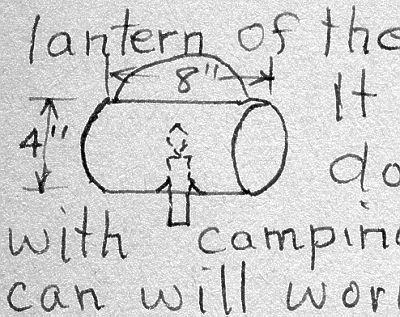 lantern of the
8"
It
4"
do
with camping
can will wor